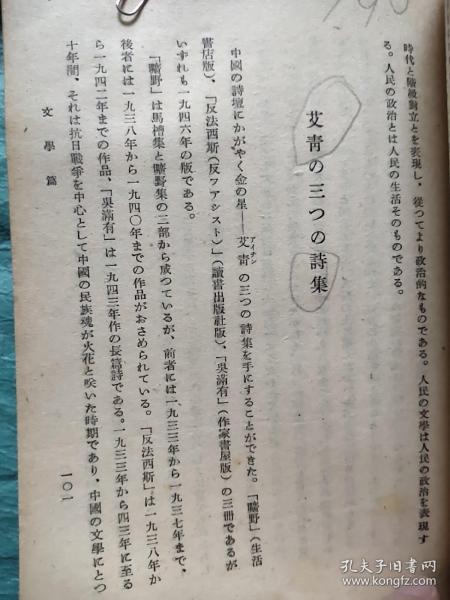 時代と階級對立とを表現し、從つてより政治的なものである。人民の文學は人民の政治を表現す
る。人民の政治とは人民の生活そのものである。
艾青の三つの詩集
中國の詩壇にかがやく金の星——艾青アイチンの三つの詩集を手にすることができた。「曠野」(生活
書店版)、「反法西斯(反フアシスト)」(讀書出版社版)、「吳滿有」(作家書屋版)の三冊であるが
いずれも一九四六年の版である。
「曠野」は馬槽集と曠野集の二部から成つているが、前者には一九三三年から一九三七年まで、
後者には一九三八年から一九四〇年までの作品がおさめられている。「反法西斯」は一九三八年か
ら一九四二年までの作品、「吳滿有」は一九四三年作の長篇詩である。一九三三年から四三年に至る
十年間、それは抗日戰爭を中心として中國の民族魂が火花と咲いた時期であり、中國の文學にとつ
文學篇
一〇一
孔夫子旧书网
www.kongfz.com